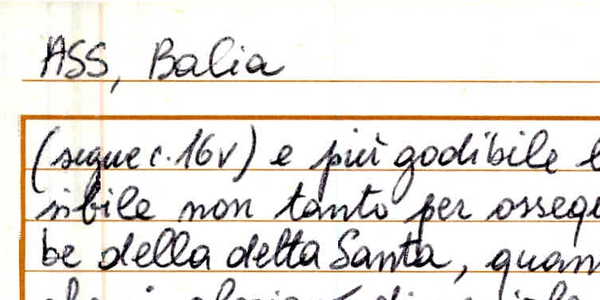 ASS, Balia
(segue c. 16v) e più godibile
sibile non tanto per osseq
be della detta Santa, quan